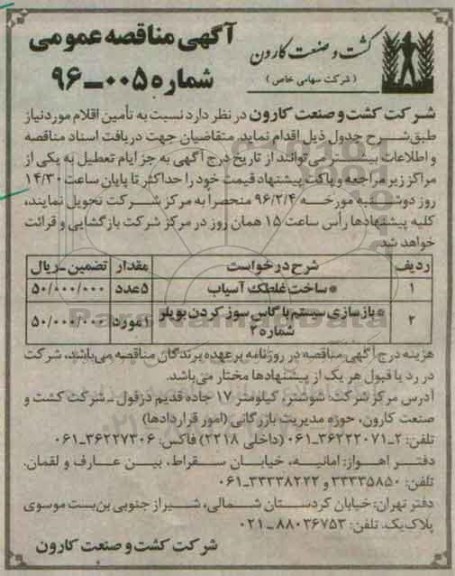 آگهی مناقصه عمومی
شماره ۰۰۵ـ۹۶
کشت و صنعت کارون
( شرکت سهامی خاص )
شرکت کشت و صنعت کارون در نظر دارد نسبت به تأمین اقلام موردنیاز
طبق شرح جدول ذیل اقدام نماید. متقاضیان جهت دریافت اسناد مناقصه
و اطلاعات بیشتر می‌توانند از تاریخ درج آگهی به جز ایام تعطیل به یکی از
مراکز زیر مراجعه و پاکت پیشنهاد قیمت خود را حداکثر تا پایان ساعت ۱۴/۳۰
روز دوشنبه مورخه ۹۶/۳/۴ منحصراً به مرکز شرکت تحویل نمایند،
کلیه پیشنهادها رأس ساعت ۱۵ همان روز در مرکز شرکت بازگشایی و قرائت
خواهد شد.
ردیف شرح درخواست مقدار تضمین ـ ریال
۱ *ساخت غلطک آسیاب ۵عدد ۵۰/۰۰۰/۰۰۰
۲ *بازسازی سیستم با گاس سوز کردن بویلر شماره ۲ ۱مورد ۵۰/۰۰۰/۰۰۰
هزینه درج آگهی مناقصه در روزنامه برعهده برندگان مناقصه می‌باشد، شرکت
در رد یا قبول هر یک از پیشنهادها مختار می‌باشد.
آدرس مرکز شرکت: شوشتر، کیلومتر ۱۷ جاده قدیم دزفول ـ شرکت کشت و
صنعت کارون، حوزه مدیریت بازرگانی (امور قراردادها)
تلفن: ۲ـ۳۶۲۲۲۰۷۱ـ۰۶۱ (داخلی ۲۲۱۸) فاکس: ۳۶۲۲۷۳۰۶ـ۰۶۱
دفتر اهواز: امانیه، خیابان سقراط، بین عارف و لقمان.
تلفن: ۳۳۳۳۵۸۵۰ و ۳۳۳۳۸۲۲۲ـ۰۶۱
دفتر تهران: خیابان کردستان شمالی، شیراز جنوبی بن‌بست موسوی
پلاک یک. تلفن: ۸۸۰۳۶۷۵۳ـ۰۲۱
شرکت کشت و صنعت کارون